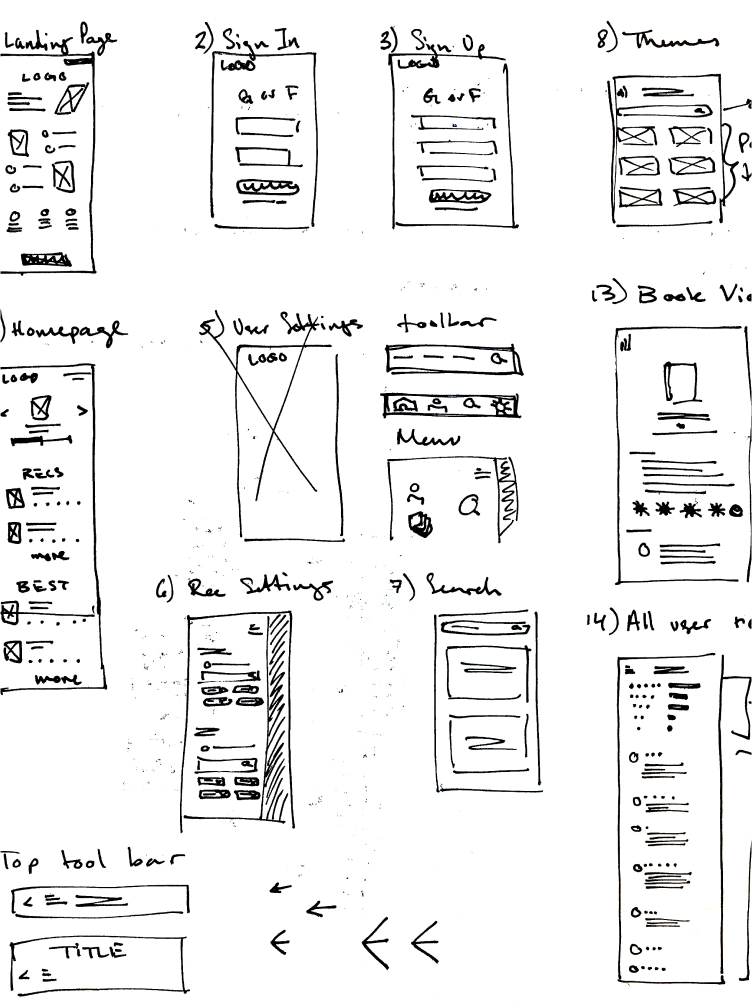 Landing Page
LOGO
2) Sign In
LOGO
G or F
3) Sign Up
LOGO
G or F
8) Themes
) Homepage
LOGO
< >
RECS
more
BEST
more
5) User Settings
LOGO
toolbar
Menu
13) Book Vie
6) Rec Settings
7) Search
14) All user r
Top tool bar
<
TITLE
<